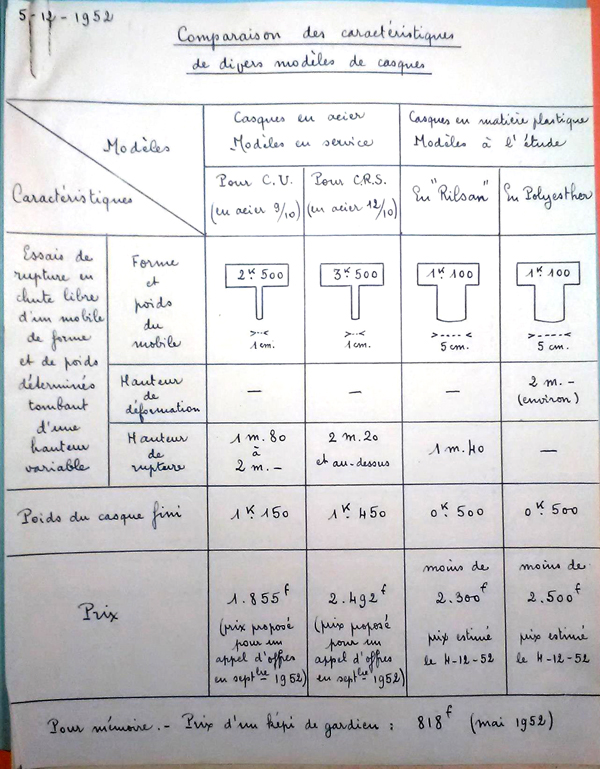 5-12-1952
Comparaison des caractéristiques
de divers modèles de casques
Modèles
Caractéristiques
Casques en acier
Modèles en service
Casques en matière plastique
Modèles à l'étude
Pour C.U.
(en acier 9/10)
Pour C.R.S.
(en acier 12/10)
En "Rilsan"
En Polyesther
Essais de
rupture en
chute libre
d'un mobile
de forme
et de poids
déterminés
tombant
d'une
hauteur
variable
Forme
et
poids
du
mobile
2 K. 500
> -- <
1 cm.
3 K. 500
> -- <
1 cm.
1 K. 100
> ----- <
5 cm.
1 K. 100
> ----- <
5 cm.
Hauteur
de
déformation
—
—
—
2 m. -
(environ)
Hauteur
de
rupture
1 m. 80
à
2 m. -
2 m. 20
et au-dessus
1 m. 40
—
Poids du casque fini
1 K. 150
1 K. 450
0 K. 500
0 K. 500
Prix
1.855 f
(prix proposé
pour un
appel d'offres
en septbre 1952)
2.492 f
(prix proposé
pour un
appel d'offres
en septbre 1952)
moins de
2.300 f
prix estimé
le 4-12-52
moins de
2.500 f
prix estimé
le 4-12-52
Pour mémoire. - Prix d'un képi de gardien : 818 f (mai 1952)